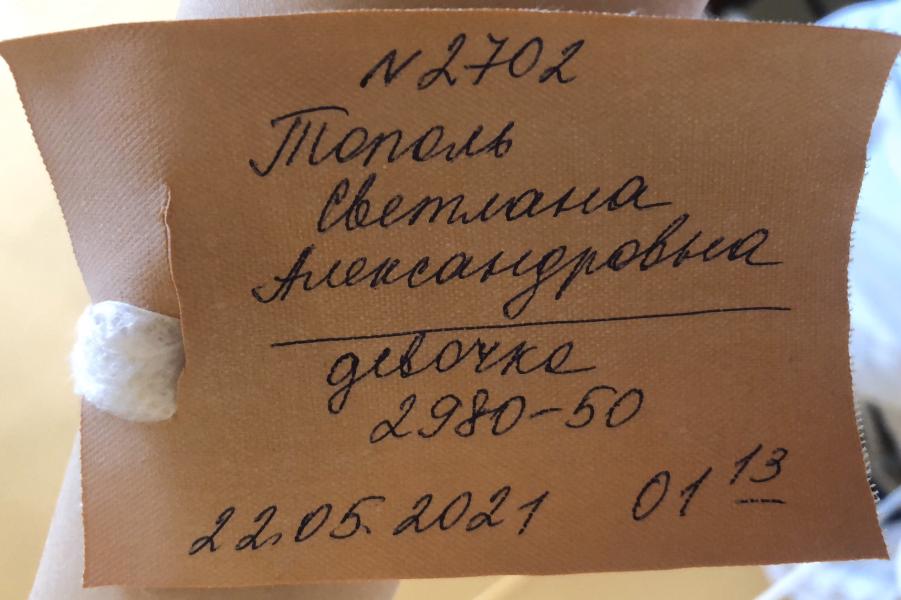 N 2702
Тополь
Светлана
Александровна
девочка
2980-50
22.05.2021 01 13